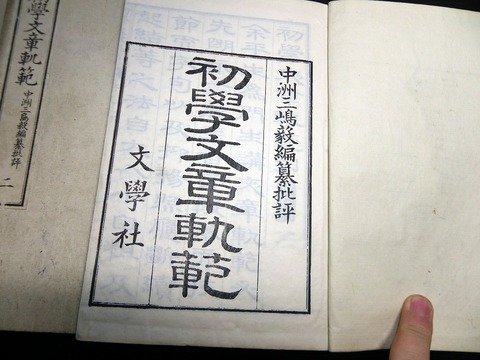 中洲三嶋毅編纂批評
初學文章軌範
文學社
學文章軌範
中洲三嶋毅編纂批評
二